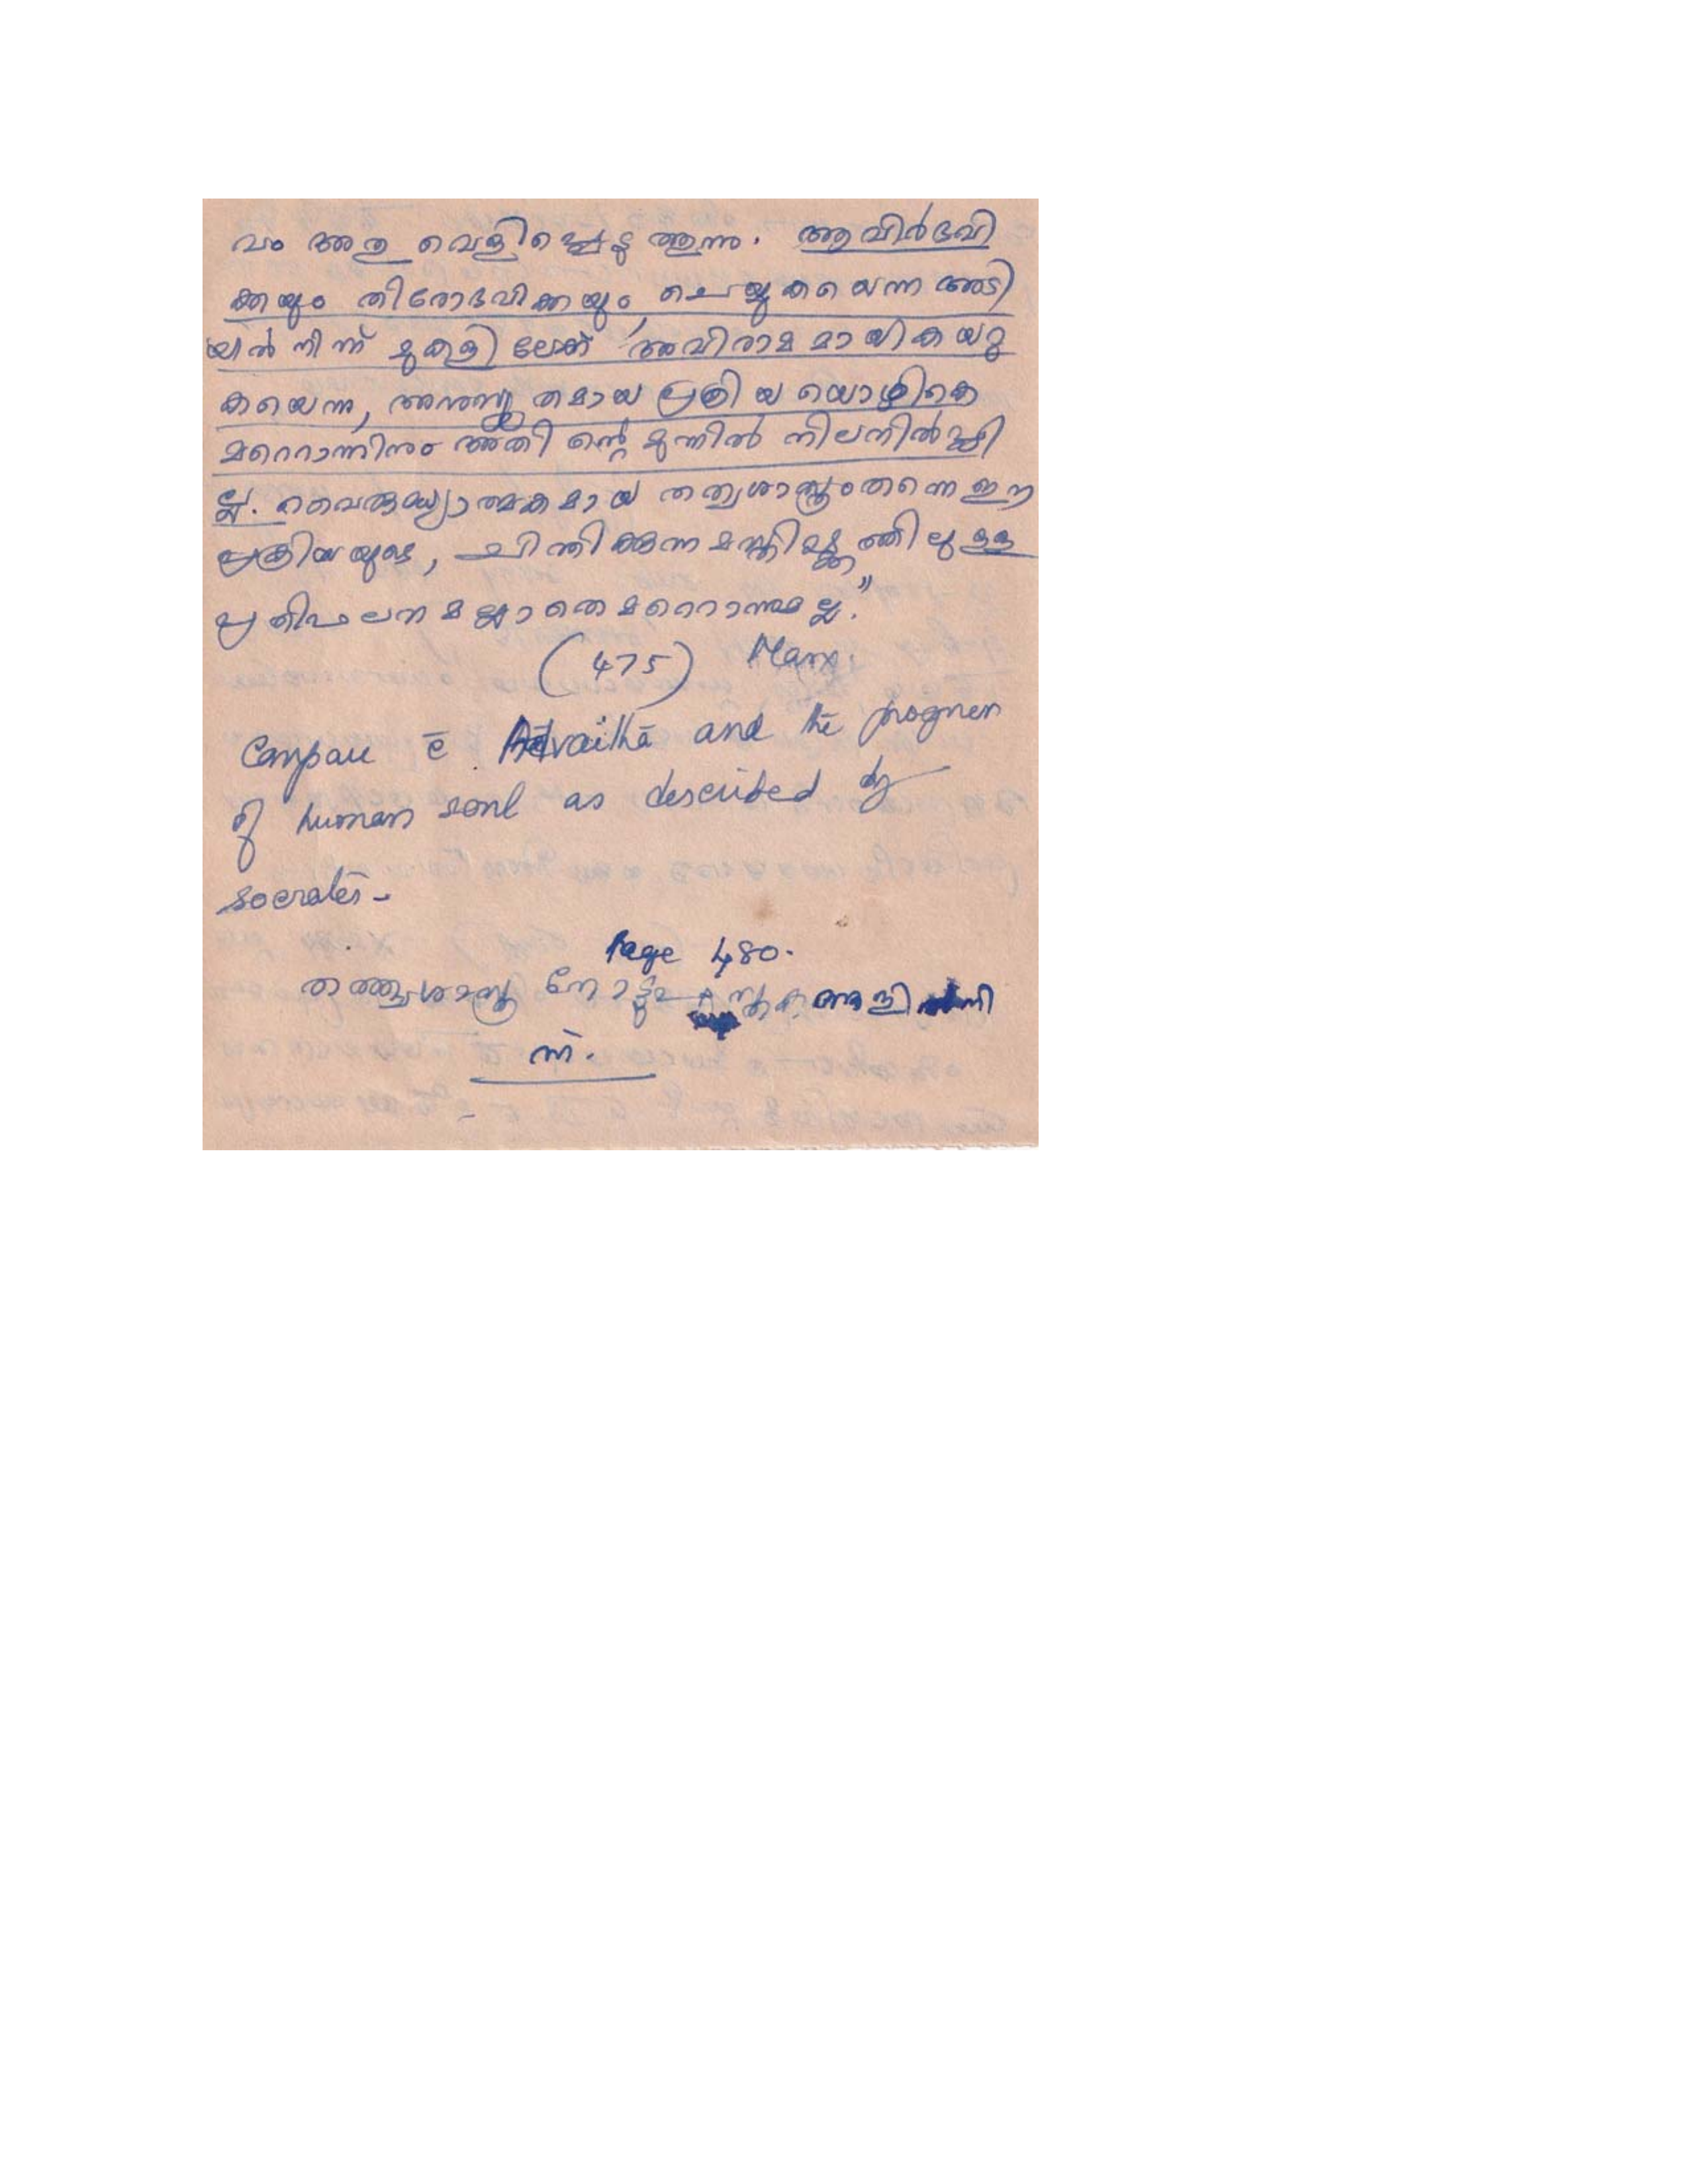 വം അതു വെളിപ്പെടുത്തുന്നു. ആവിർഭവി
ക്കയും തിരോഭവിക്കയും ചെയ്യുകയെന്ന അടി
യിൽ നിന്ന് മുകളിലേക്ക് അവിരാമമായി കയറു
കയെന്ന, അനുസ്യൂതമായ പ്രക്രിയ യൊഴികെ
മറെറാന്നിനും അതിന്റെ മുന്നിൽ നിലനിൽപ്പി
ല്ല. വൈരുദ്ധ്യാത്മകമായ തത്വശാസ്ത്രം തന്നെ ഈ
പ്രക്രിയയുടെ, ചിന്തിക്കുന്ന മസ്തിഷ്ക്കത്തിലുള്ള
പ്രതിഫലനമല്ലാതെ മറെറാന്നുമല്ല."
(475) Marx.
Compare c̄ Advaitha and the progress
of human soul as described by
Socrates -
Page 480.
തത്ത്വശാസ്ത്ര നോട്ടുപുസ്തകങ്ങളിൽ നി
ന്ന്.